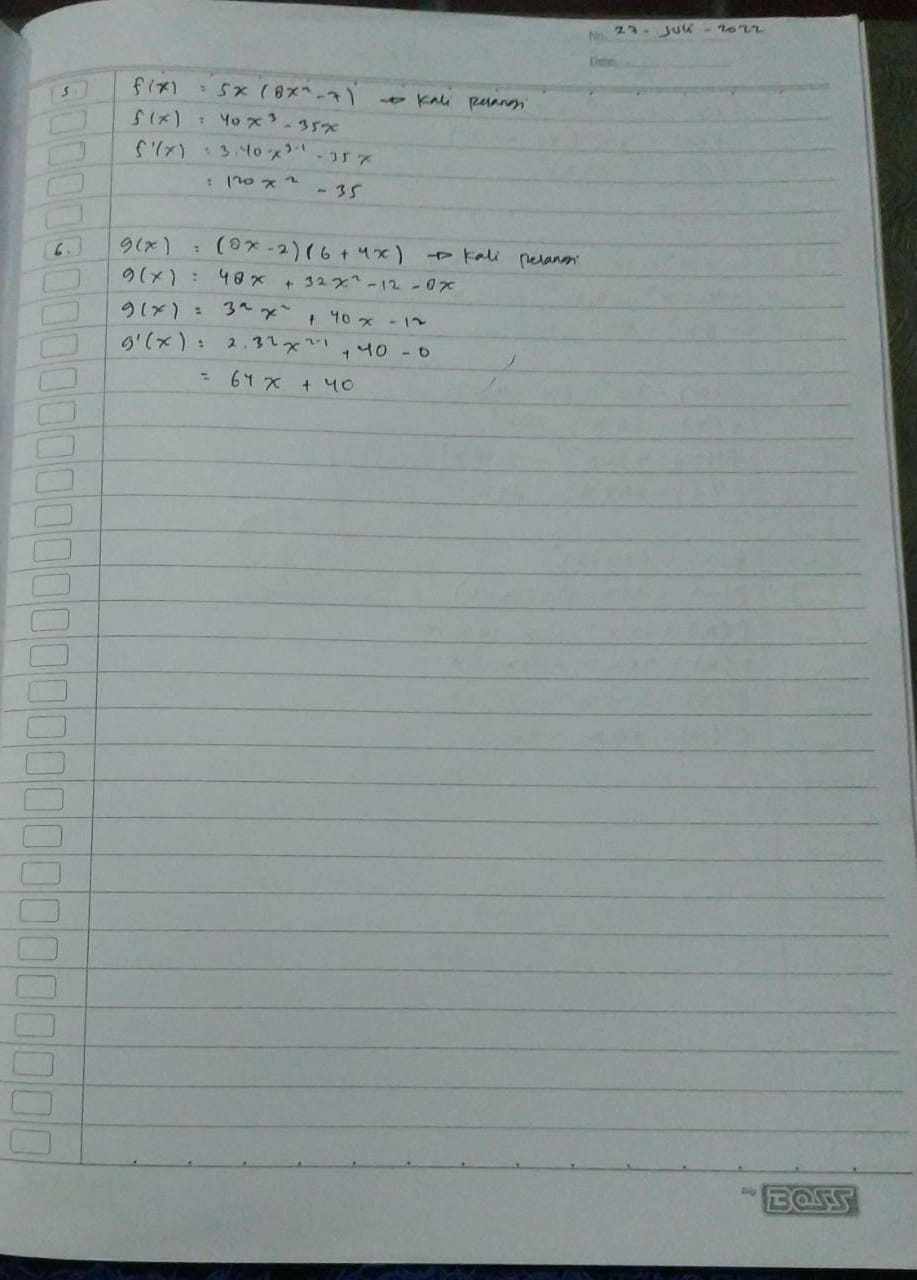 No. 27 - Juli - 2022
Date
5. f(x) = 5x (8x² - 7) → kali pelangi
f(x) = 40x³ - 35x
f'(x) = 3.40 x³⁻¹ - 35x
= 120x² - 35
6. g(x) = (8x - 2)(6 + 4x) → kali pelangi
g(x) = 48x + 32x² - 12 - 8x
g(x) = 32x² + 40x - 12
g'(x) = 2.32x²⁻¹ + 40 - 0
= 64x + 40
BOSS